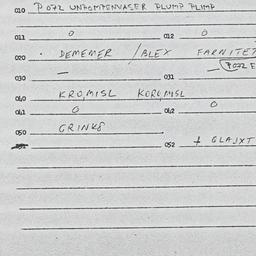 010 P072 UNPOMPENVASER PLUMP PLIMP
011 0 012 0
020 DEMEMER /ALEX FARNITE
P072 E
030 — 031 —
040 KROMISL KOROMISL
041 0 042 0
050 GRINKS
052 + GLAJXT